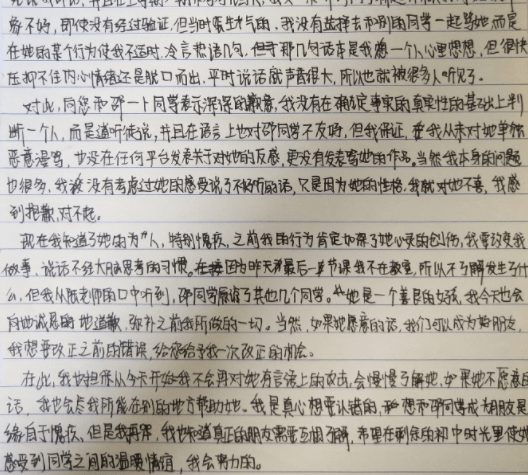 象不好,即使没有经过验证,但当时底生气的,我没有选择去和别的同学一起骂她而是
在她的某个行为使我不适时,冷言热语几句,但于那几句话本是我想一个人心里想想,但很快
压抑不住内心情绪还是脱口而出,平时说话就声音很大,所以也就被很多人听见了。
对此,向您和邵一卜同学表示深深的歉意,我没有在确定事实的真实性的基础上判
断一个人,而是道听徒说,并且在语言上地对邵同学不友好,但我保证,我从未对她单独
恶意漫骂,也没在任何平台发表关于对她的反感,更没有发表骂她的作品。当然我本身的问题
也很多,我没有考虑过她的感受说了不好听的话,只是因为她的性格,我就对她不喜,我感
到抱歉,对不起。
现在我知道了她的为人,特别愧疚,之前我的行为肯定加深了她心灵的创伤,我要改变我
做事、说话不经大脑思考的习惯。在 因为昨天 最后一节课我不在教室,所以不了解发生了什
么,但我从 老师的口中听到,邵同学原谅了其他几个同学。她是一个善良的女孩,我今天也会
向她诚恳的地道歉,弥补之前我所做的一切。当然,如果她愿意的话,我们可以成为好朋友,
我想要改正之前的错误,给您给予我一次改正的机会。
在此,我也担保从今天开始我不会再对她有言语上的攻击,会慢慢了解她,如果她不愿意的
话,我也会尽我所能在别的地方帮助她。我是真心想要认错的,想和邵同学成为朋友是
缘自于愧疚,但是我再深,我也知道真正的朋友需要互相了解,希望在剩余的初中时光里使她
感受到同学之间的温暖情谊,我会努力的。